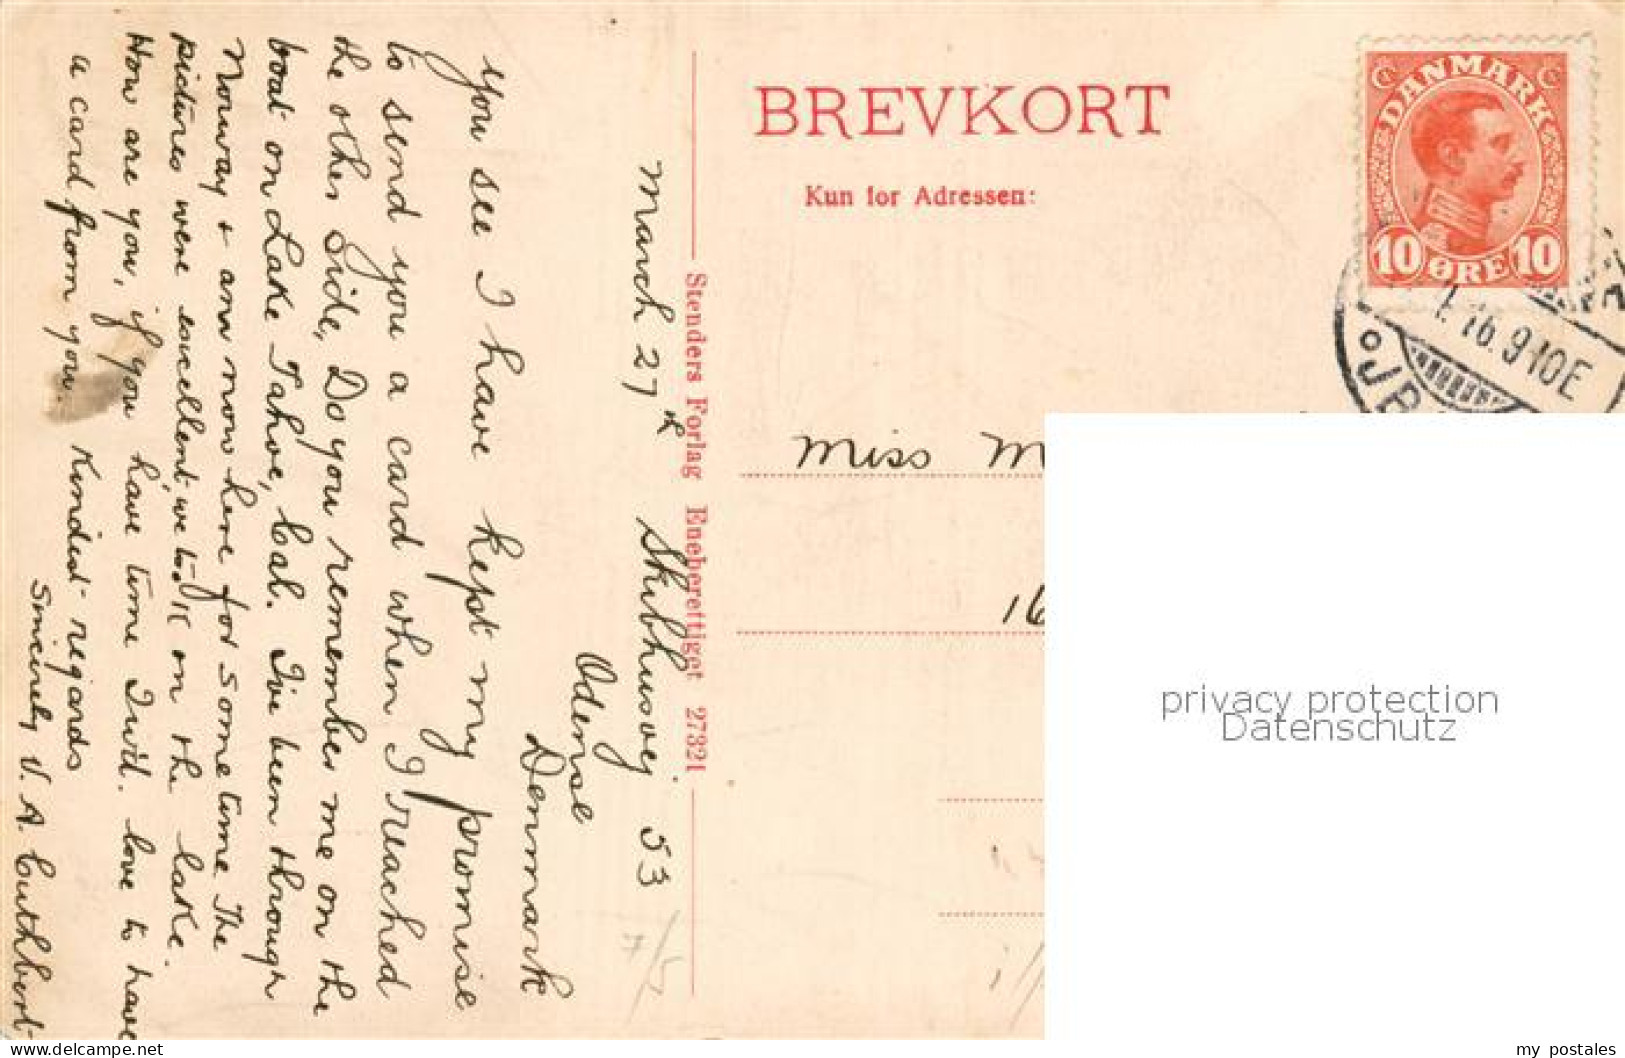 BREVKORT
Kun for Adressen:
DANMARK
10 ØRE 10
1.16.9-10E
Miss M
16
March 27th Skibhusvej 53
Odense
Denmark
You see I have kept my promise
to send you a card when I reached
the other side, Do you remember me on the
boat on Lake Tahoe, Cal. I've been through
Norway + am now here for some time The
pictures were excellent, we took on the lake.
How are you, if you have time I w'd. love to have
a card from you. Kindest regards
Sincerely V. A. Cuthbert
Stenders Forlag Eneberettiget 27321
7/5
privacy protection
Datenschutz
my postales